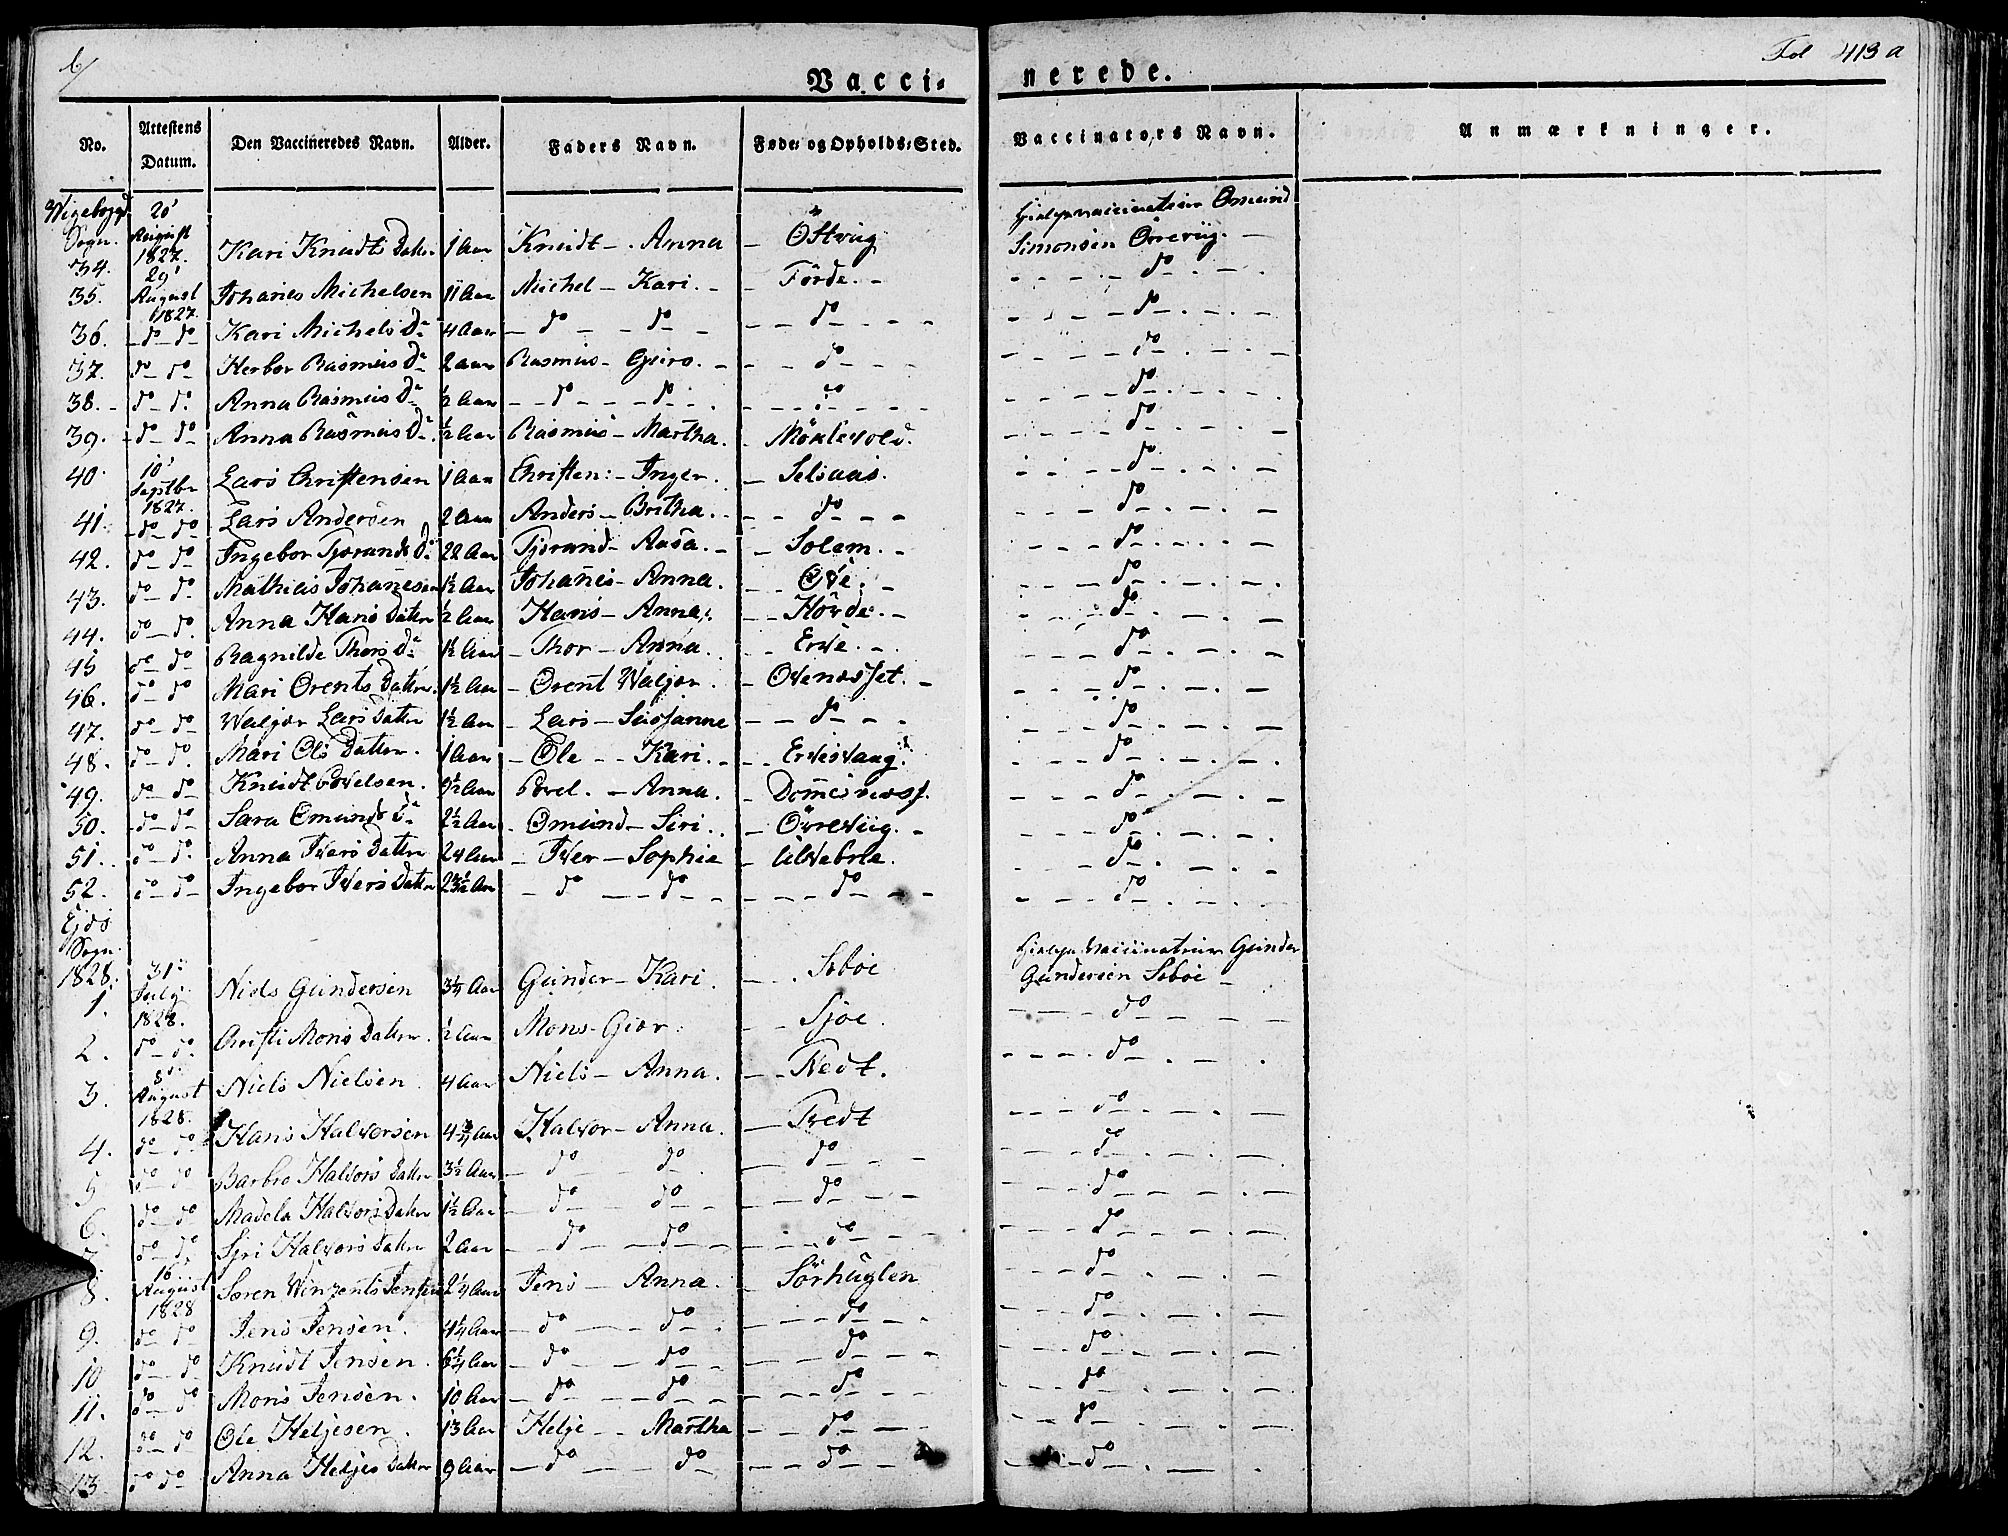 Fol 413 a
Vacci- nerede.
No. Attestens Datum. Den Vaccineredes Navn. Alder. Faders Navn. Føde- og Opholds-Sted. Vaccinators Navn. Anmærkninger.
Sogn. 20' August 1827.
34. Kari Knudts Datter 1 Aar Knudt - Anna - Östvug Hielpevaccinateur Omund Simonsen Örrevüg.
35. 29' August 1827. Johanes Michelsen 11 Aar Michel - Kari. - Förde. - do
36. do do Kari Michels Dr 4 Aar do do do do
37. do do Herbor Rasmus Dr 2 aar Rasmus - Guro. do do
38. do do Anna Rasmus Dr ½ Aar do do do do
39. do do Anna Rasmus Dr. ½ Aar Rasmus - Martha. - do
40. 10' Septbr 1827. Lars Christensen 1 Aar Christen: - Inger. - Selsaas. do
41. do do Lars Andersen 2 Aar Anders - Britha. do do
42. do do Ingebor Tjorands Dr 22 Aar Tjorand - Aasa. - Solem. do
43. do do Mathias Johanesen 1½ Aar Johanes - Anna. Öve. do
44. do do Anna Hans Datter ½ Aar Hans - Anna. Hövde. do
45 do do Ragnilde Thors Dr 1½ Aar - Thor - Anna. Erve. do
46. do do Mari Orents Datter. 1½ Aar - Orent Waljor. - do
47. do do Waljor Lars Datter 1½ Aar - Lars - Susanne do do
48. do do Mari Ols Datter. 1 Aar - Ole - Kari. - Ervesvaag. do
49. do do Knudt Povelsen. Povel. - Anna. do
50. do do Sara Omunds Dr 2½ Aar - Omund - Siri. - Örrevüg. do
51. do do Anna Ivers Datter 24 Aar - Iver - Sophie - do
52. do do Ingebor Ivers Datter do do do do
Sogn. 1828.
1. 31' July 1828. Niels Gundersen 3¼ Aar Gunder - Kari. Seboe Hielpe Vaccinateur Gunder Gundersen Seboe
2. do do Christi Mons Datter. ½ Aar Mons - Giør. Sjoe. do
3. 8' August 1828. Niels Nielsen 4 Aar Niels - Anna. Tvedt. do
4. do do Hans Halvorsen Halvor - Anna. Tvedt do
5 do do Barbro Halvors Datter 3½ Aar do do do do
6. do do Madela Halvors Datter 1½ Aar do do do do
7. do do Sjri Halvors Datter 2 Aar do do do do
8. 16' August 1828 Søren Winzents Jensen 2¼ Aar Jens - Anna. Sörhuglen do
9. do do Jens Jensen. 4¼ Aar do do do do
10 do do Knudt Jensen. 6¼ Aar do do do do
11. do do Mons Jensen. 10 Aar do do do do
12. do do Ole Heljesen. 13 Aar Helje - Martha do do
13 do do Anna Heljes Datter 9 Aar do do do do